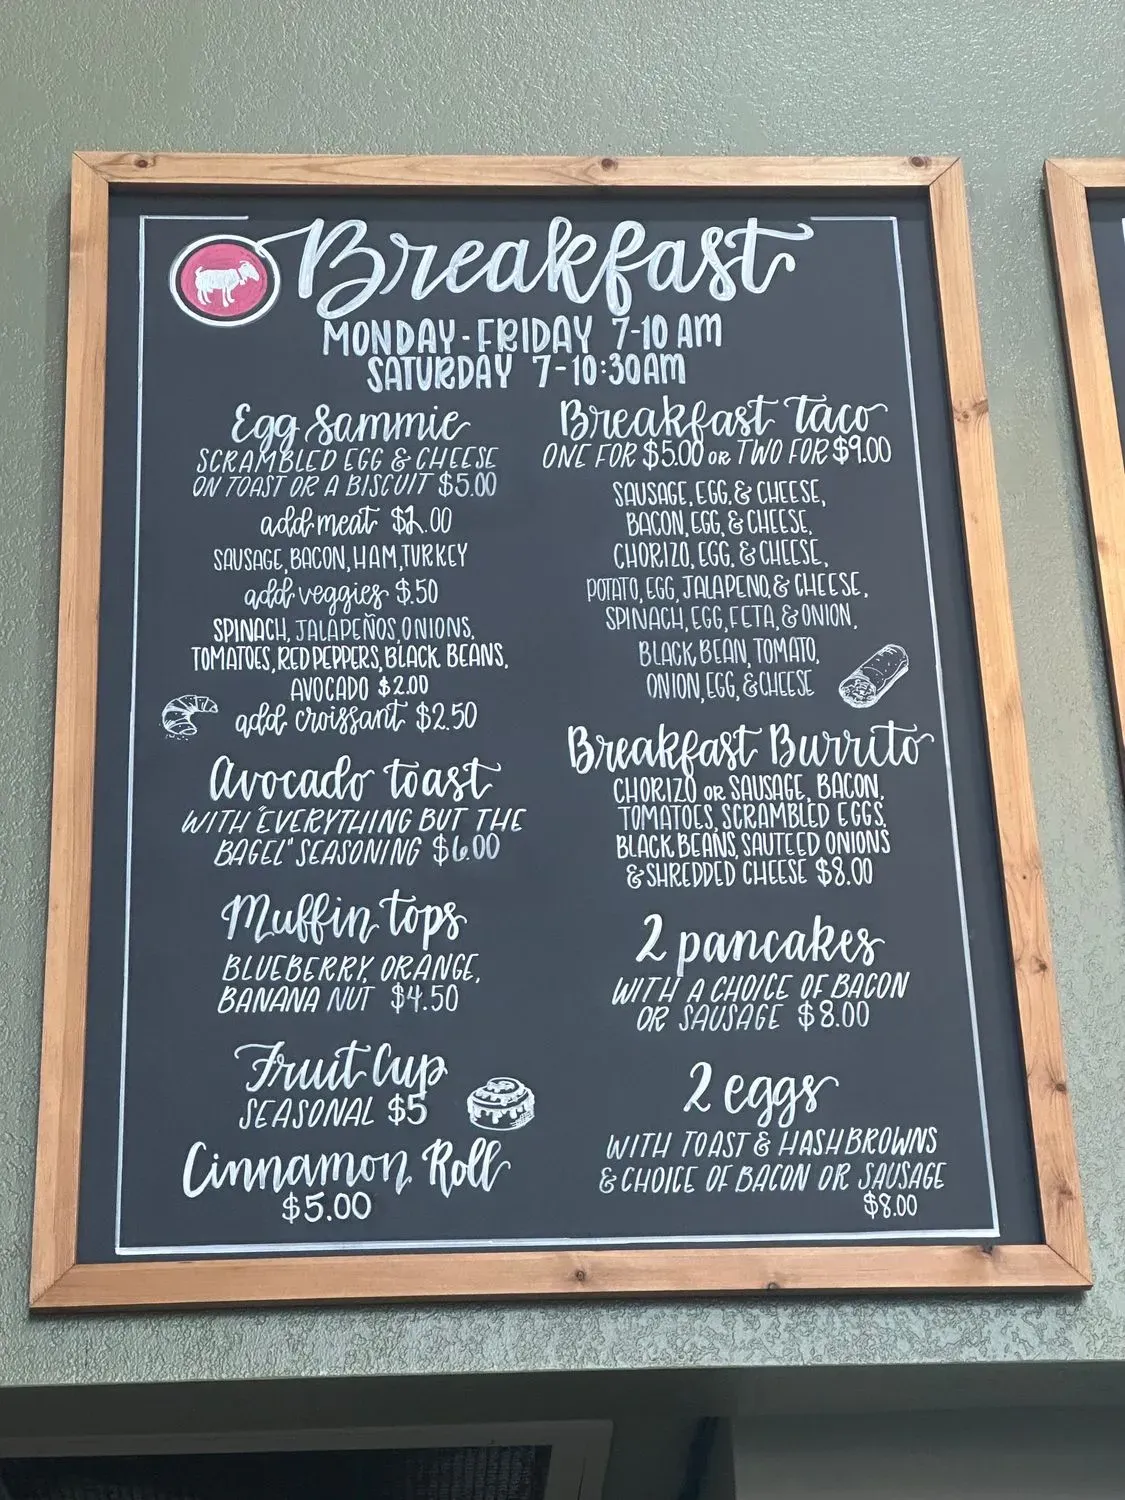 Breakfast
MONDAY-FRIDAY 7-10 AM
SATURDAY 7-10:30AM
Egg Sammie
SCRAMBLED EGG & CHEESE
ON TOAST OR A BISCUIT $5.00
add meat $2.00
SAUSAGE, BACON, HAM, TURKEY
add veggies $.50
SPINACH, JALAPEÑOS, ONIONS,
TOMATOES, RED PEPPERS, BLACK BEANS,
AVOCADO $2.00
add croissant $2.50
Avocado toast
WITH "EVERYTHING BUT THE
BAGEL" SEASONING $6.00
Muffin tops
BLUEBERRY, ORANGE,
BANANA NUT $4.50
Fruit Cup
SEASONAL $5
Cinnamon Roll
$5.00
Breakfast taco
ONE FOR $5.00 OR TWO FOR $9.00
SAUSAGE, EGG, & CHEESE,
BACON, EGG, & CHEESE,
CHORIZO, EGG, & CHEESE,
POTATO, EGG, JALAPENO, & CHEESE,
SPINACH, EGG, FETA, & ONION,
BLACK BEAN, TOMATO,
ONION, EGG, & CHEESE
Breakfast Burrito
CHORIZO OR SAUSAGE, BACON,
TOMATOES, SCRAMBLED EGGS,
BLACK BEANS, SAUTEED ONIONS
& SHREDDED CHEESE $8.00
2 pancakes
WITH A CHOICE OF BACON
OR SAUSAGE $8.00
2 eggs
WITH TOAST & HASHBROWNS
& CHOICE OF BACON OR SAUSAGE
$8.00